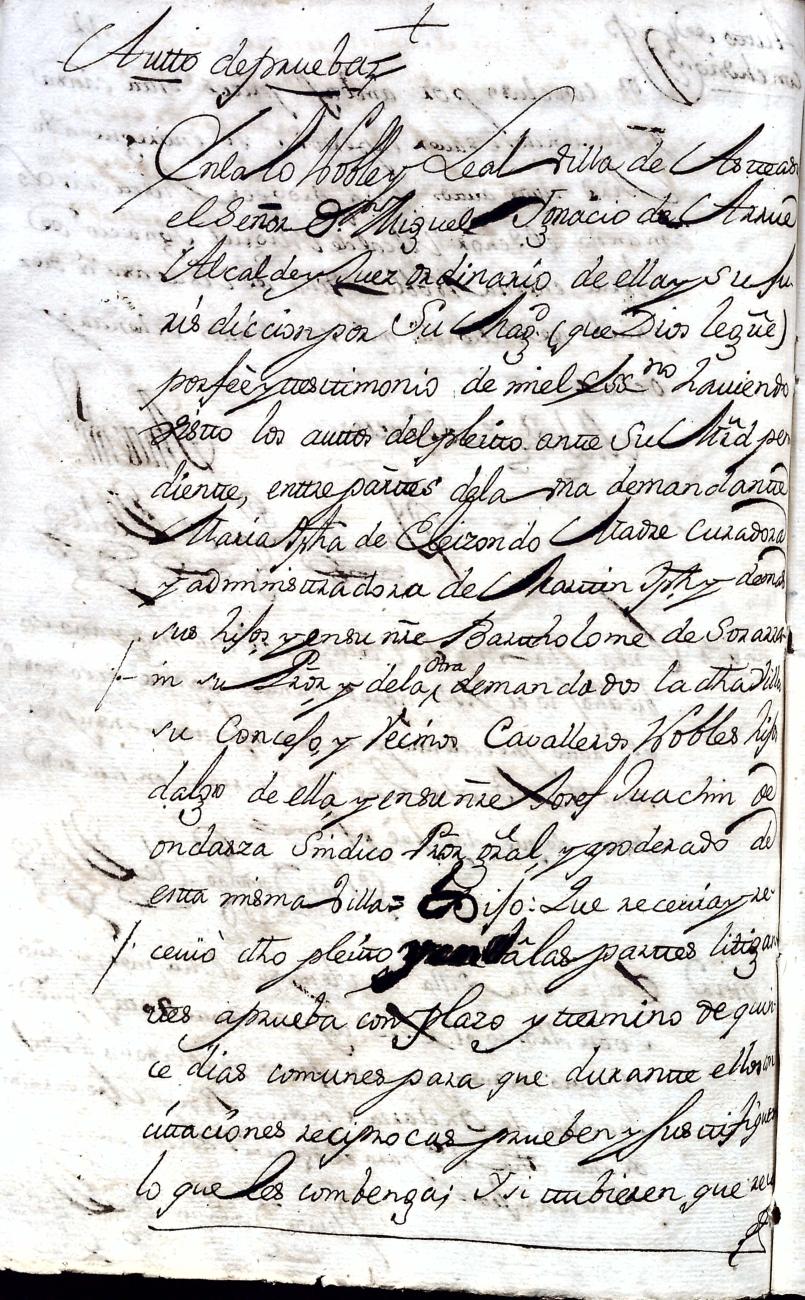 +
Autto de prueba =
En la M Noble y Leal Villa de Asteasu
el Señor Dn. Miguel Ignacio de Arrue
Alcalde y Juez ordinario de ella y su ju
risdiccion por Su Magd (que Dios legûe)
por fèe y testimonio de miel Essno haviendo
visto los auttos del pleitto ante Su Mrd pen
diente, entre parttes dela una demandantte
Maria Jpha de Eleizondo Madre curadora
y administtradora de Martin Jph y demas
sus hijos y en su nre Bartholome de Sorarra
in su Pror y dela otra demandados la dha Villa
su Concejo, y Vecinos Cavalleros Nobles hijos
dalgo de ella, y en su nre Josef Juachin de
ondarza Sindico Pror gral, y apoderado de
estta misma Villa = Dijo: Que recevia y re
ceviò dho pleitto â las parttes litigan
ttes a prueba con plazo y ttermino de quin
ce dias comunes para que durantte ellos con
cittaciones reciprocas prueben y justtifiquen
lo que les combenga; Y si ttubieren que